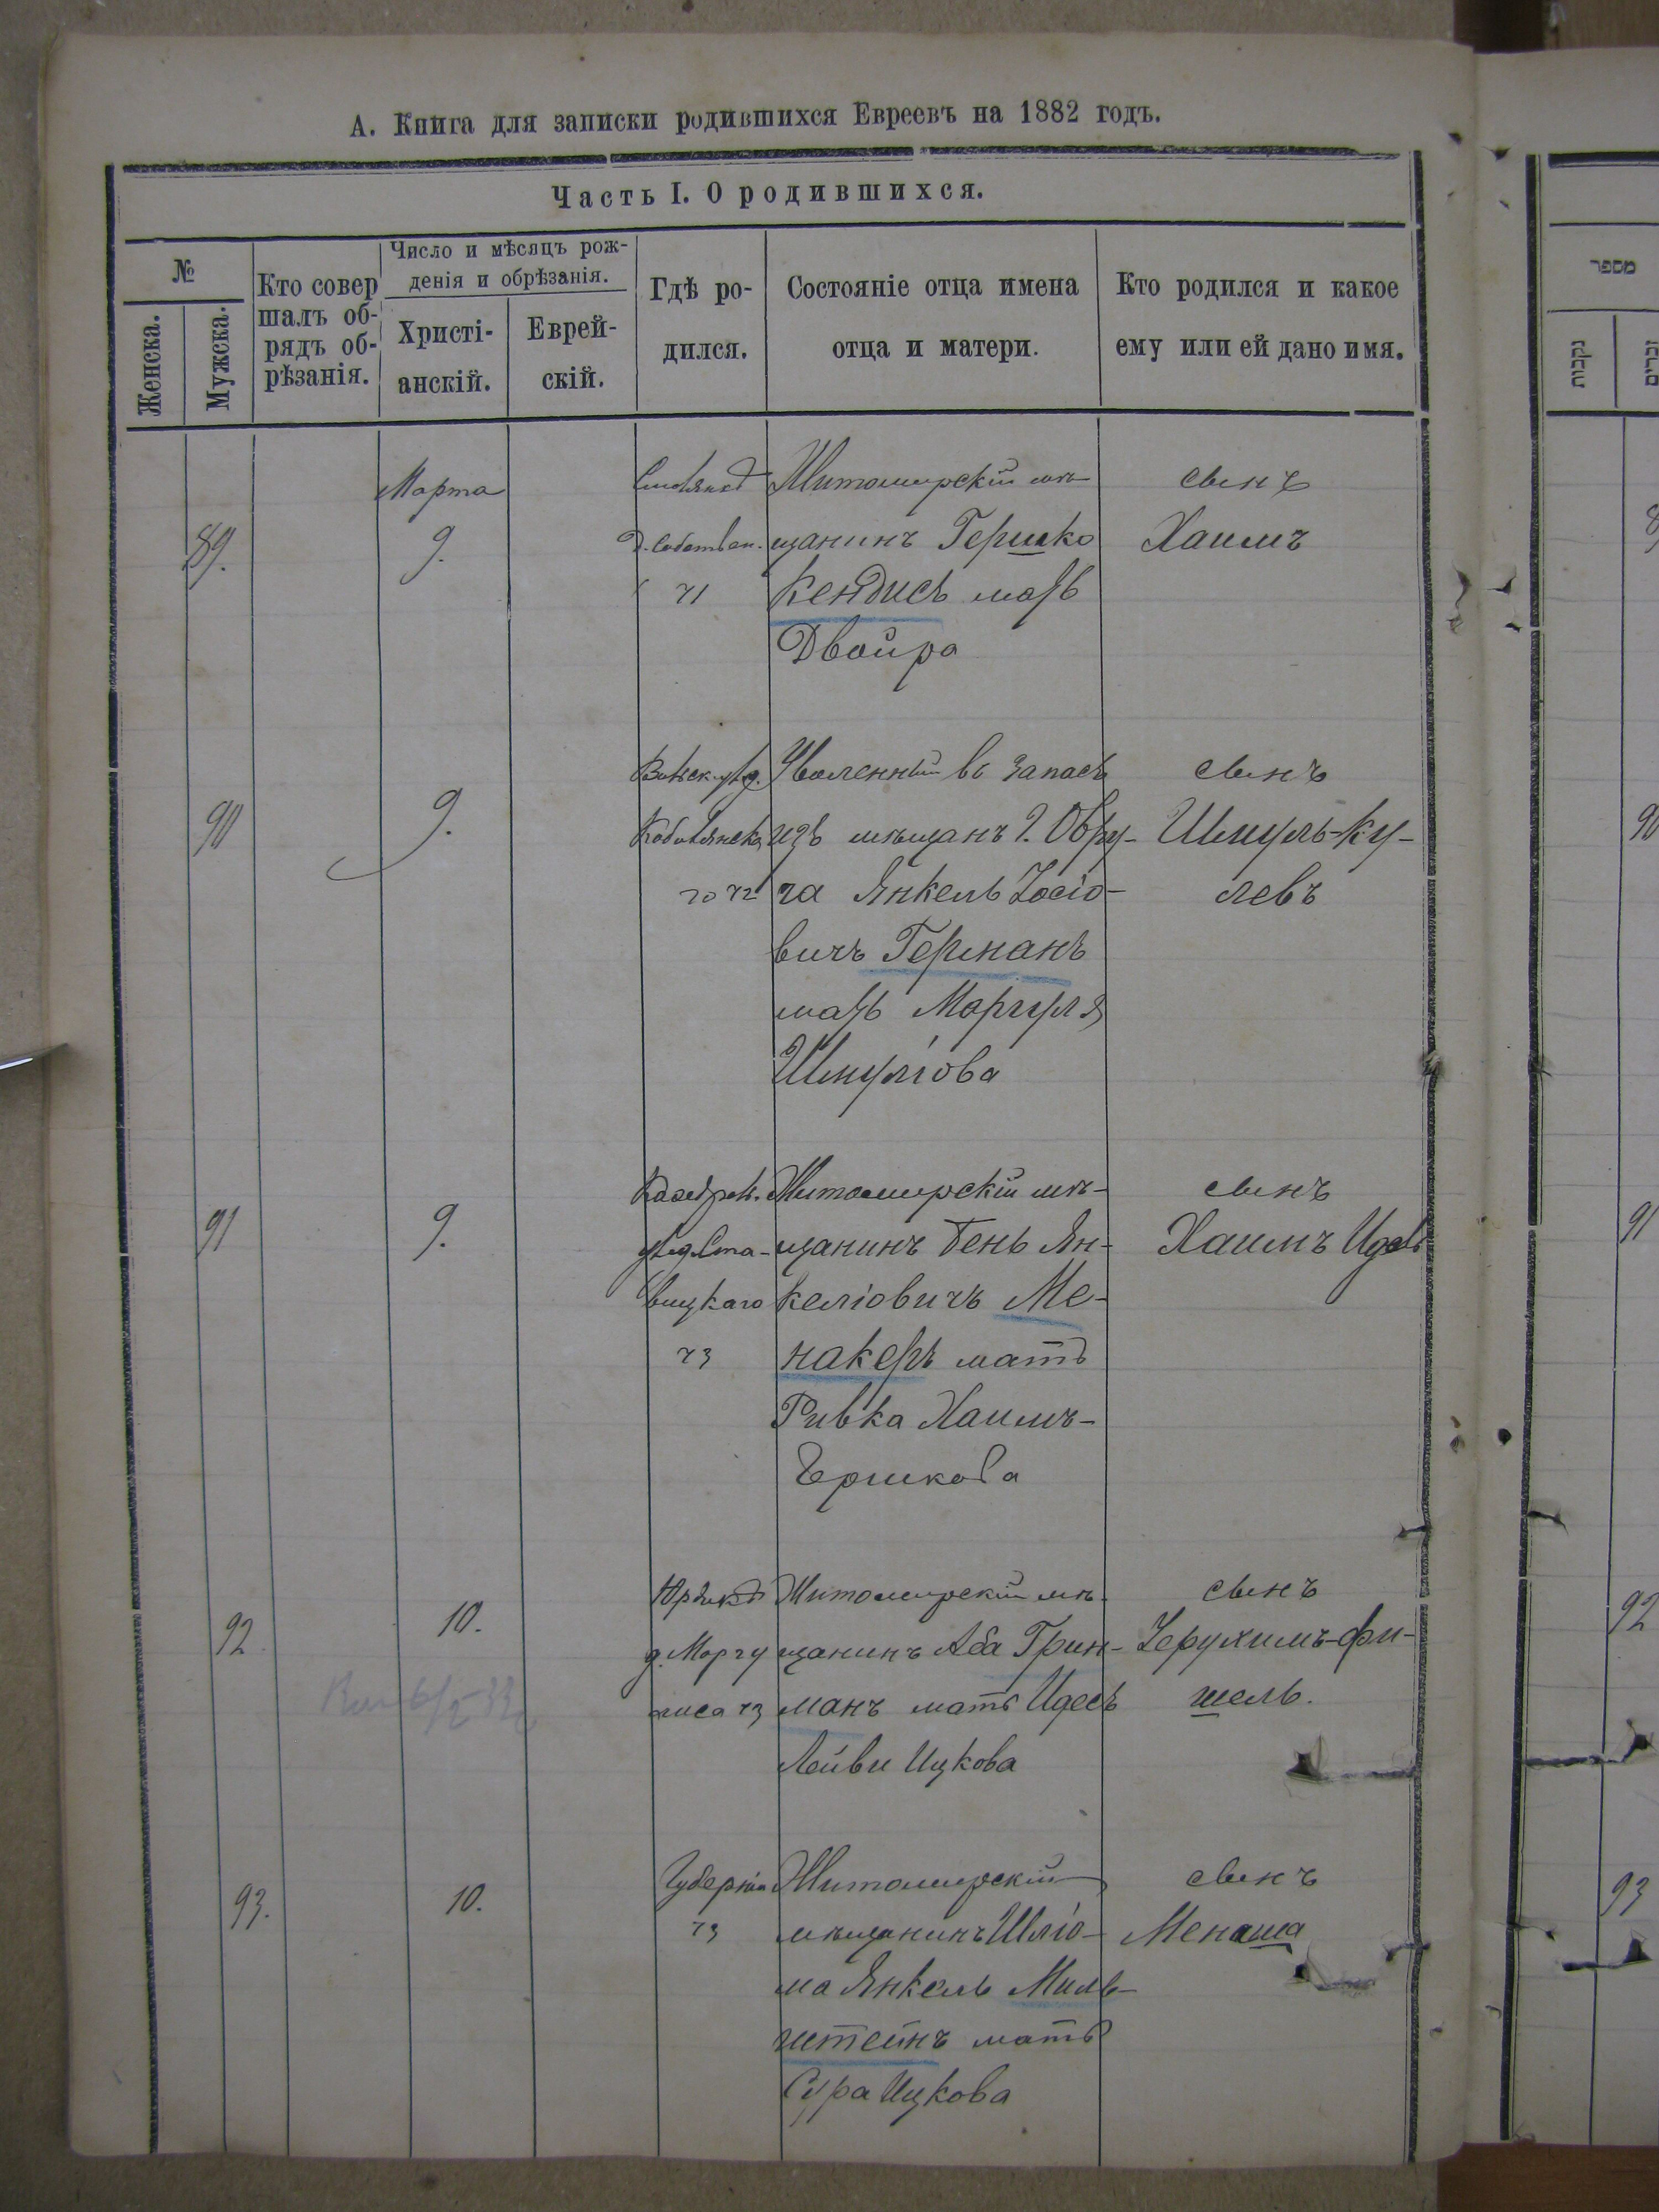 А. Книга для записки родившихся Евреевъ на 1882 годъ.
Часть I. О родившихся.
№
Женска.
Мужска.
Кто совер
шалъ об-
рядъ об-
рѣзанія.
Число и мѣсяцъ рож-
денія и обрѣзанія.
Христі-
анскій.
Еврей-
скій.
Гдѣ ро-
дился.
Состояніе отца имена
отца и матери.
Кто родился и какое
ему или ей дано имя.
מספר
נקבות
זכרים
Марта
89.
9.
д. Собствен.
ч1
Житомирскій мѣ-
щанинъ Гершко
Кендисъ мать
Двойра
сынъ
Хаимъ
90
9.
го ч2
Уволенный въ запасъ
изъ мѣщанъ г. Овру-
ча Янкель Іосіо-
вичъ Германъ
мать Маргуля
Шмуліова
сынъ
Шмуль-Ку-
левъ
90
91
9.
вицкаго
ч3
Житомирскій мѣ-
щанинъ Бень Ян-
келіовичъ Ме-
накеръ мать
Ривка Хаимъ-
Берикова
сынъ
Хаимъ Идель
91
92
10.
д. Маргу
лиса ч3
Житомирскій мѣ-
щанинъ Аба Грин-
манъ мать Идесъ
Лейви Ицкова
сынъ
Іерухимъ-Фи-
шель.
92
93.
10.
Губерніи
ч3
Житомирскій
мѣщанинъ Шліо-
ма Янкель Миль-
штейнъ мать
Сура Ицкова
сынъ
Менаша
93